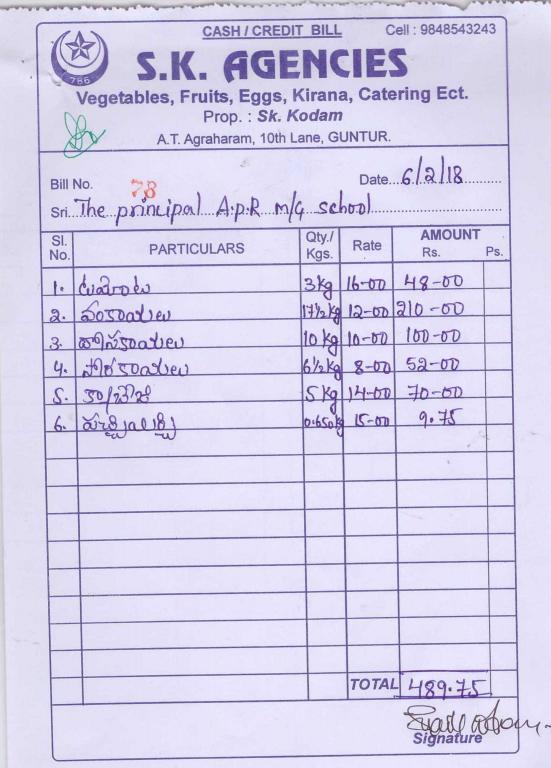 CASH / CREDIT BILL Cell : 9848543243
786
S.K. AGENCIES
Vegetables, Fruits, Eggs, Kirana, Catering Ect.
Prop. : Sk. Kodam
A.T. Agraharam, 10th Lane, GUNTUR.
Bill No. 78 Date 6/2/18
Sri. The principal A.p.R m/G school
Sl. No. PARTICULARS Qty./ Kgs. Rate AMOUNT Rs. Ps.
1. టమాటాలు 3 kg 16-00 48-00
2. వంకాయలు 17½ kg 12-00 210-00
3. దోసకాయలు 10 kg 10-00 100-00
4. సొరకాయలు 6½ kg 8-00 52-00
5. క్యాబేజి 5 kg 14-00 70-00
6. పచ్చిమిర్చి 0.650 kg 15-00 9.75
TOTAL 489.75
Signature